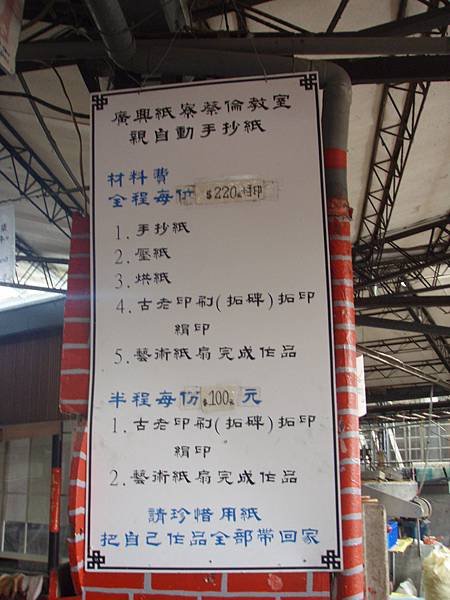 廣興紙寮蔡倫教室
親自動手抄紙
材料費
全程每份 $220
1. 手抄紙
2. 壓紙
3. 烘紙
4. 古老印刷(拓碑)拓印
絹印
5. 藝術紙扇完成作品
半程每份 100 元
1. 古老印刷(拓碑)拓印
絹印
2. 藝術紙扇完成作品
請珍惜用紙
把自己作品全部帶回家